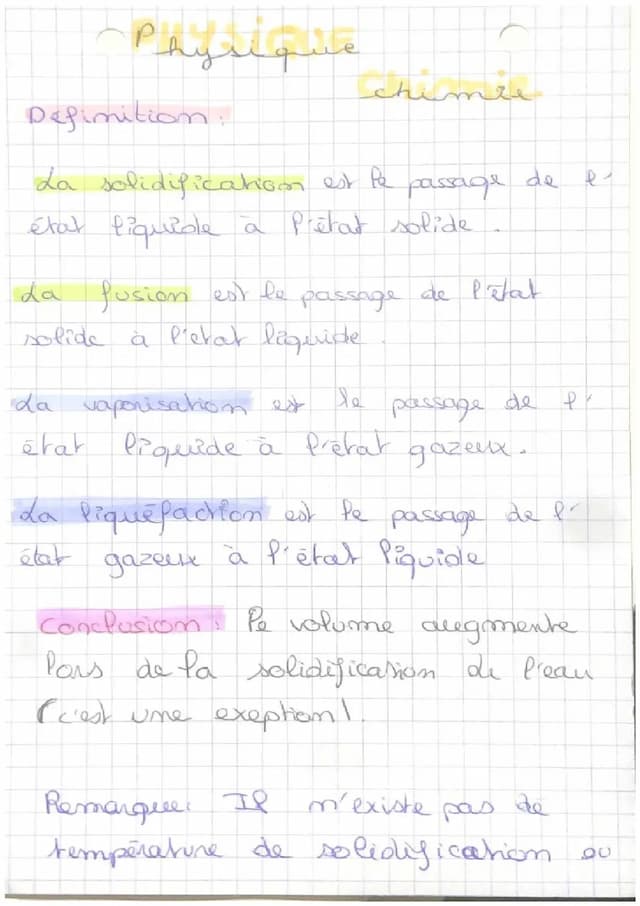 Physique
chimie
Définition :
La solidification est le passage de l'
état liquide à l'état solide.
La fusion est le passage de l'état
solide à l'etat liquide.
La vaporisation est le passage de l'
état liquide à l'état gazeux.
La liquéfaction est le passage de l'
état gazeux à l'état liquide
Conclusion : le volume augmente
lors de la solidification de l'eau
(c'est une exeption).
Remarque: Il n'existe pas de
température de solidification ou